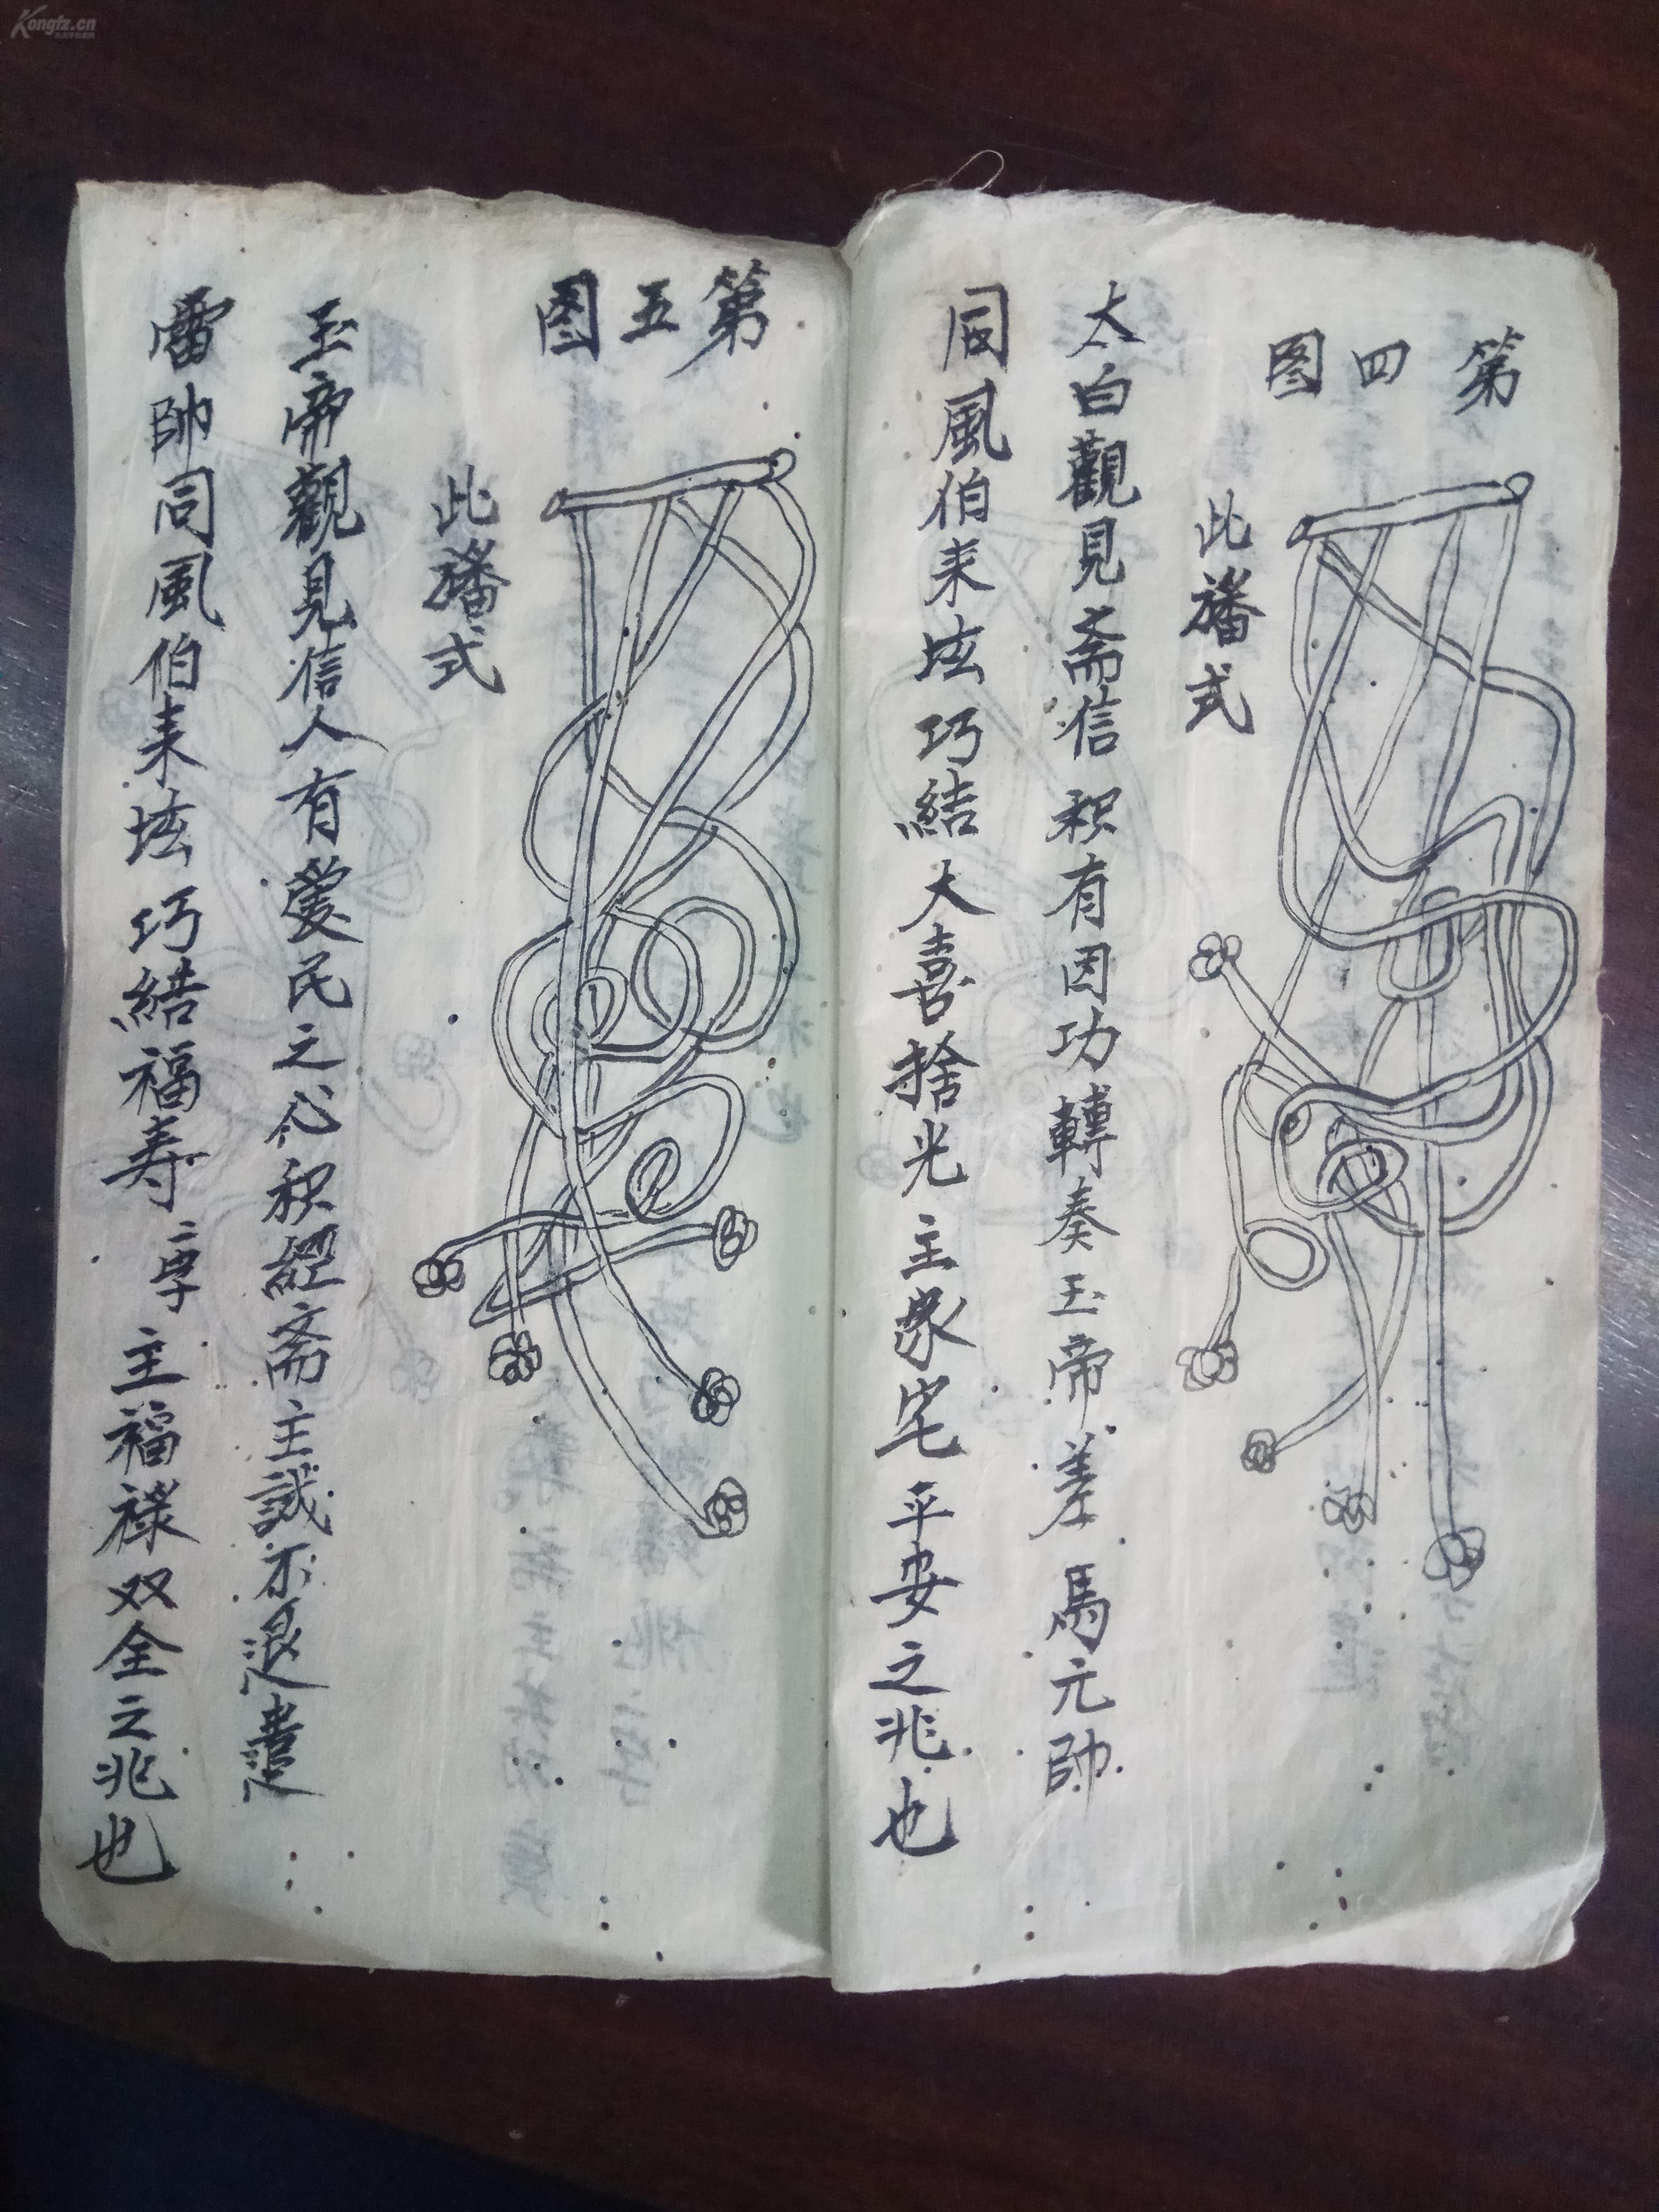 第四图
此旛式
太白觀見斋信积有因功轉奏玉帝差馬元帥
同風伯来坛巧結大喜捨光主家宅平安之兆也
第五图
此旛式
玉帝觀見信人有爱民之心积經斋主誠不退遣
雷帥同風伯来坛巧結福寿二字主福禄双全之兆也
Kongfz.cn